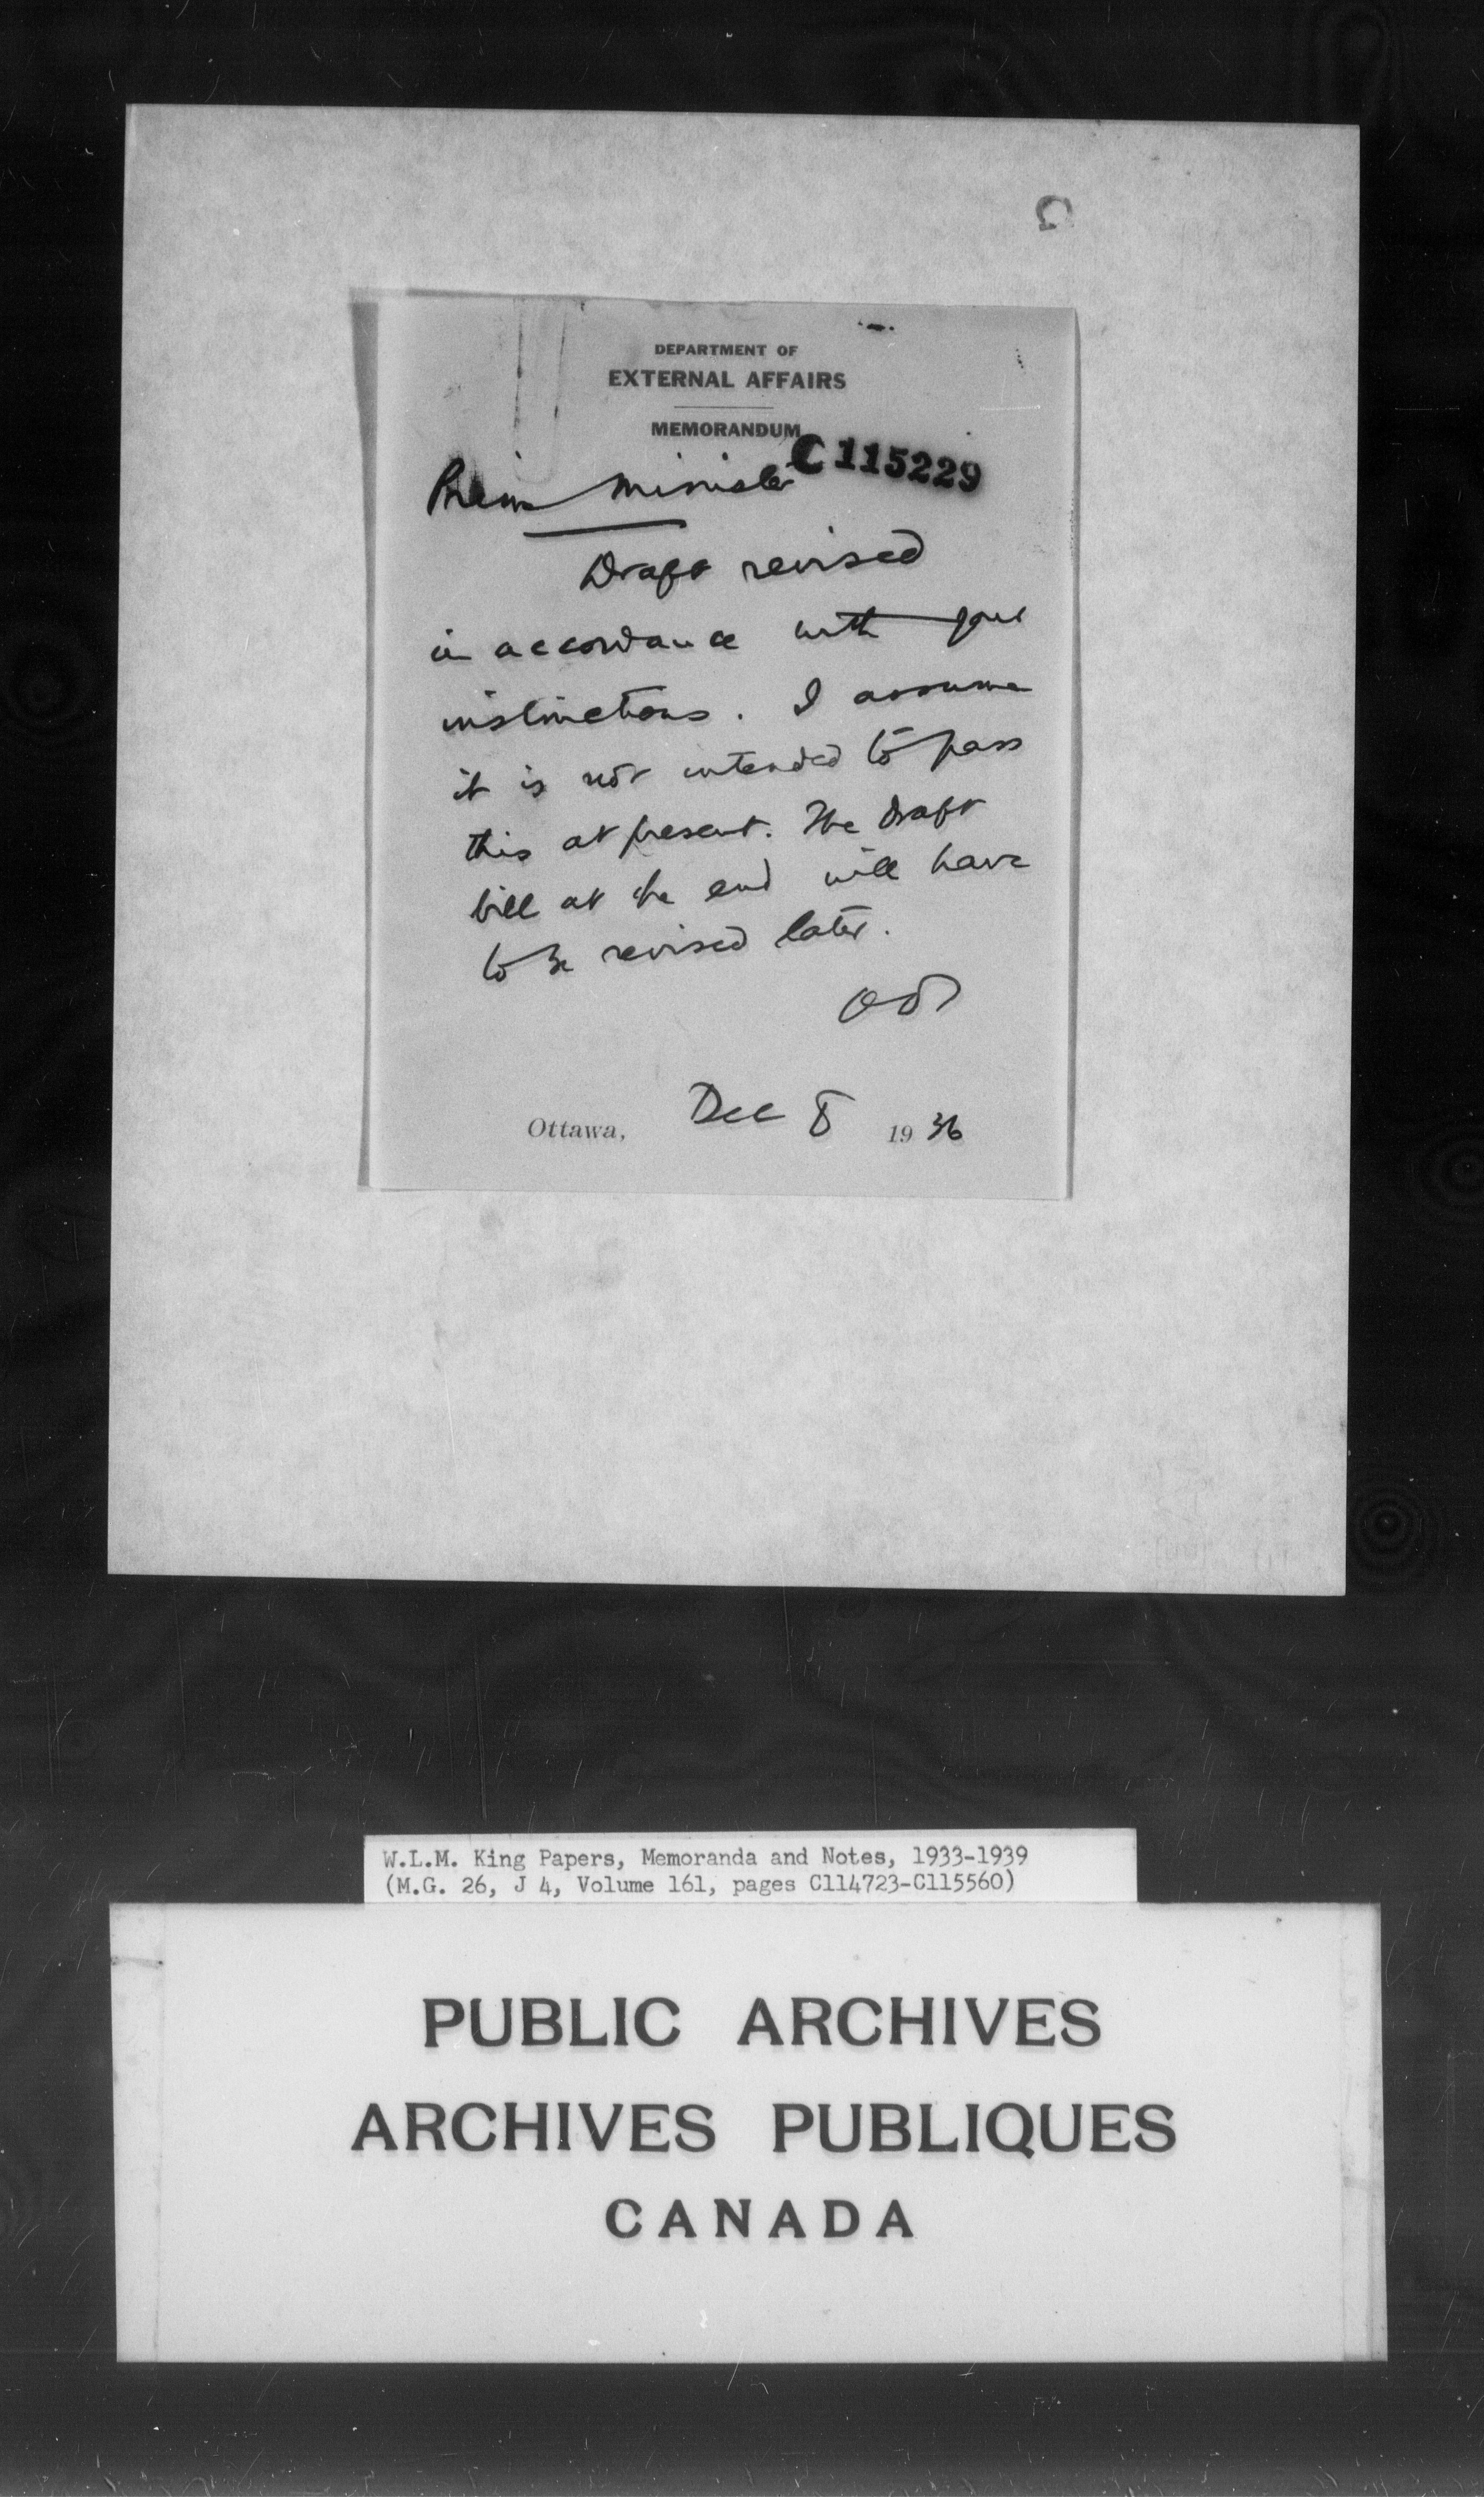 DEPARTMENT OF
EXTERNAL AFFAIRS
MEMORANDUM
C115229
Prime Minister
Draft revised
in accordance with your
instructions. I assume
it is not intended to pass
this at present. The draft
bill at the end will have
to be revised later.
Ottawa, Dec 8 1936
W.L.M. King Papers, Memoranda and Notes, 1933-1939
(M.G. 26, J 4, Volume 161, pages C114723-C115560)
PUBLIC ARCHIVES
ARCHIVES PUBLIQUES
CANADA